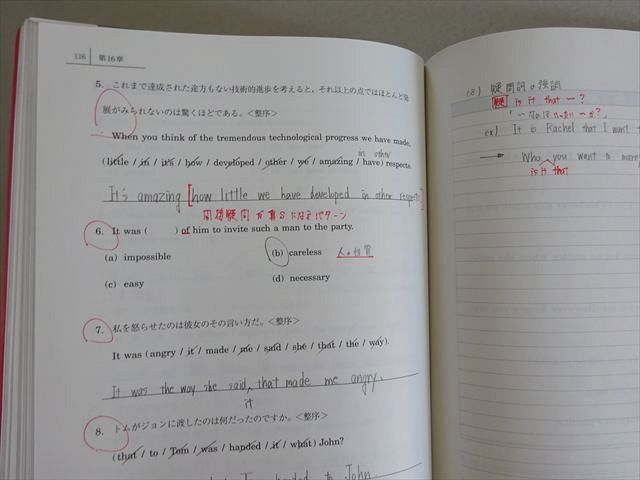 116 第16章
5. これまで達成された途方もない技術的進歩を考えると、それ以上の点ではほとんど発
展がみられないのは驚くほどである。<整序>
When you think of the tremendous technological progress we have made,
(little / in / it's / how / developed / other / we / amazing / have) respects.
in other
It's amazing [how little we have developed in other respects]
間接疑問が真Sになるパターン
6. It was ( ) of him to invite such a man to the party.
(a) impossible (b) careless 人の性質
(c) easy (d) necessary
7. 私を怒らせたのは彼女のその言い方だ。<整序>
It was (angry / it / made / me / said / she / that / the / way).
It was the way she said, that made me angry.
it
8. トムがジョンに渡したのは何だったのですか。<整序>
(that / to / Tom / was / handed / it / what) John?
handed to John.
(8) 疑問詞の強調
疑 is it that ~?
ex) It is Rachel that I want
→ Who you want to
is it that